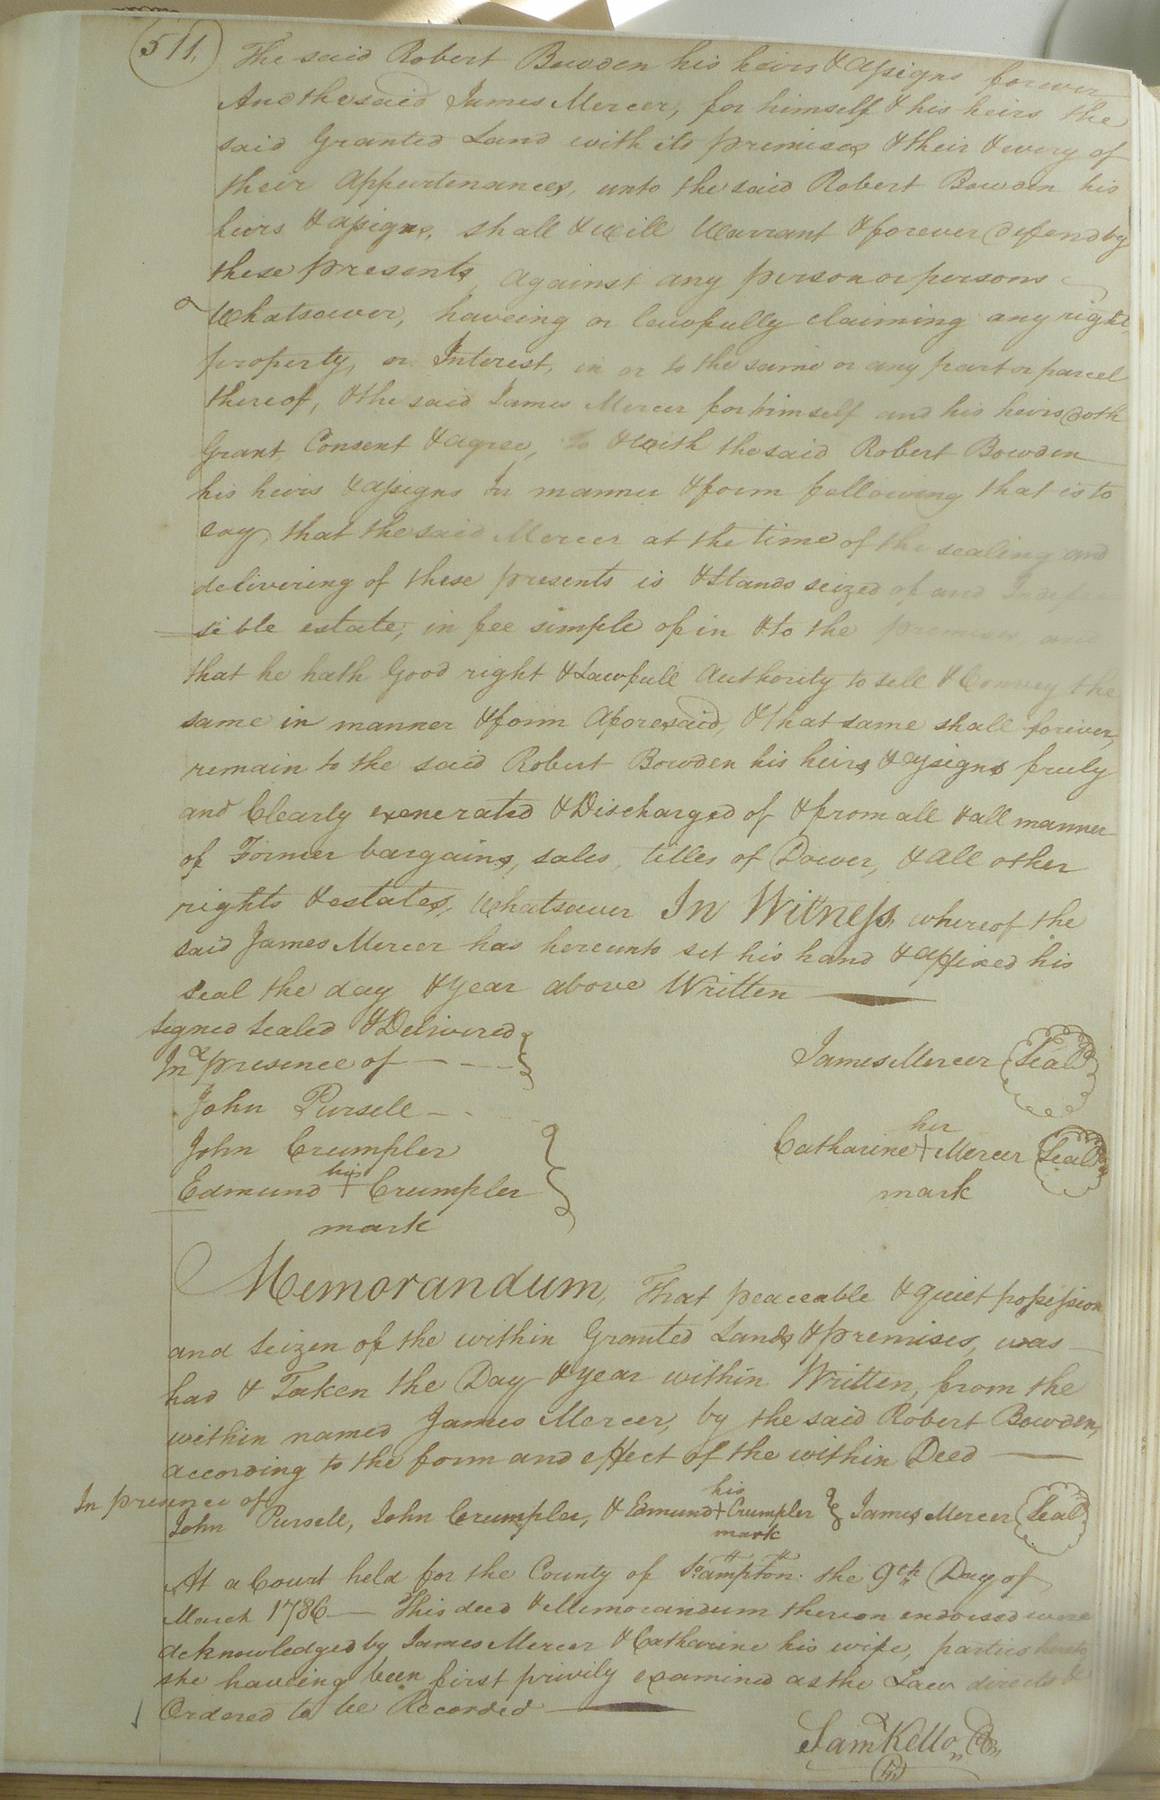 511.
The said Robert Bowden his heirs & assigns forever
And the said James Mercer, for himself & his heirs the
said Granted Land with its premises & their & every of
their Appurtenances, unto the said Robert Bowden his
heirs & assigns, shall & will Warrant & forever defend by
these presents, against any person or persons
Whatsoever, haveing or lawfully claiming any right,
property, or Interest, in or to the same or any part or parcel
thereof, & the said James Mercer for himself and his heirs doth
Grant Consent & agree, to & with the said Robert Bowden
his heirs & assigns In manner & form following that is to
say, that the said Mercer at the time of the sealing and
delivering of these presents is & stands seized of and Indefea
sible estate, in fee simple of in & to the premises and
that he hath Good right & Lawfull Authority to sell & Convey the
same in manner & form Aforesaid, & that same shall forever,
remain to the said Robert Bowden his heirs & assigns fruly
and Clearly exenerated & Discharged of & from all & all manner
of Former bargains, sales, titles of Dower, & all other
rights & estates, Whatsaver In Witness, whereof the
said James Mercer has hereunto set his hand & affixed his
seal the day & year above Written
Signed Sealed & Delivered
In presence of
James Mercer Seal
John Pursele
John Crumpler
her
Catharine + Mercer Seal
mark
his
Edmund + Crumpler
mark
Memorandum, That peaceable & quiet possession
and Seizen of the within Granted Lands & premises, was
had & Taken the Day & year within Written, from the
within named James Mercer, by the said Robert Bowden,
according to the form and effect of the within Deed
In presence of
his
John Pursele, John Crumpler, & Edmund + Crumpler James Mercer Seal
mark
At a Court held for the County of So.ampton. the 9th Day of
March 1786 This deed & Memorandum thereon endorsed were
acknowledged by James Mercer & Catharine his wife, parties hereto
she haveing been first privily examined as the Law directs &
Ordered to be Recorded
Saml Kello